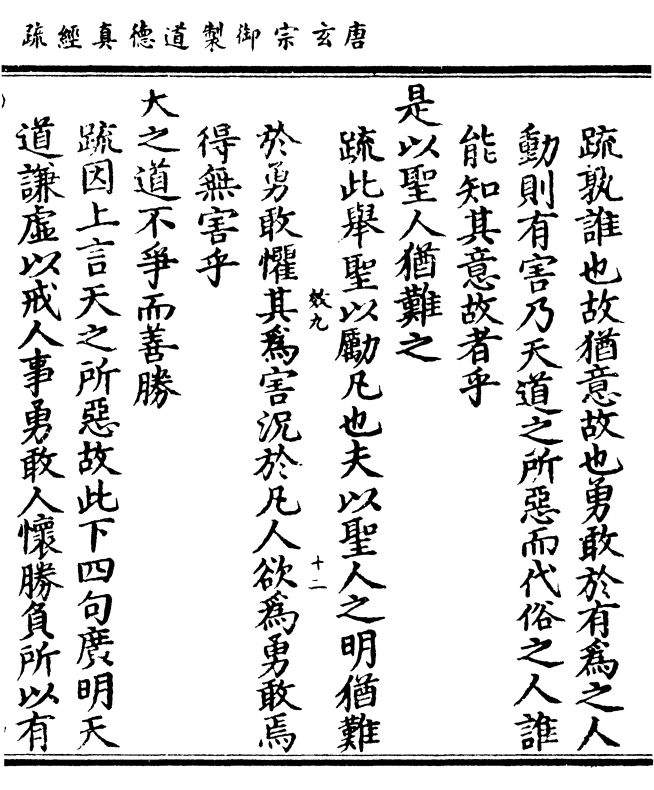 唐玄宗御製道德真經疏
疏孰誰也故猶意故也勇敢於有為之人
動則有害乃天道之所惡而代俗之人誰
能知其意故者乎
是以聖人猶難之
疏此舉聖以勵凡也夫以聖人之明猶難
效九
十二
於勇敢懼其為害況於凡人欲為勇敢焉
得無害乎
大之道不爭而善勝
疏因上言天之所惡故此下四句廣明天
道謙虛以戒人事勇敢人懷勝負所以有